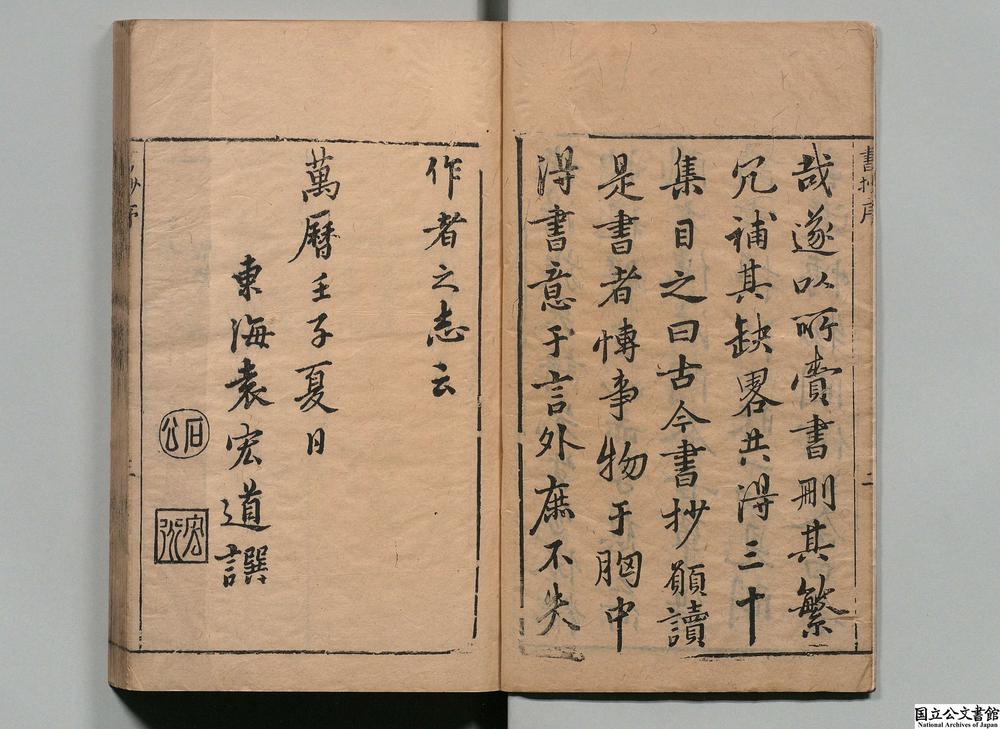 書抄序
二
哉遂以所賫書刪其繁
冗補其缺畧共淂三十
集目之曰古今書抄願讀
是書者慱事物于胸中
淂書意于言外庶不失
作者之志云
萬曆壬子夏日
東海袁宏道譔
石公
宏道
國立公文書館
National Archives of Japan